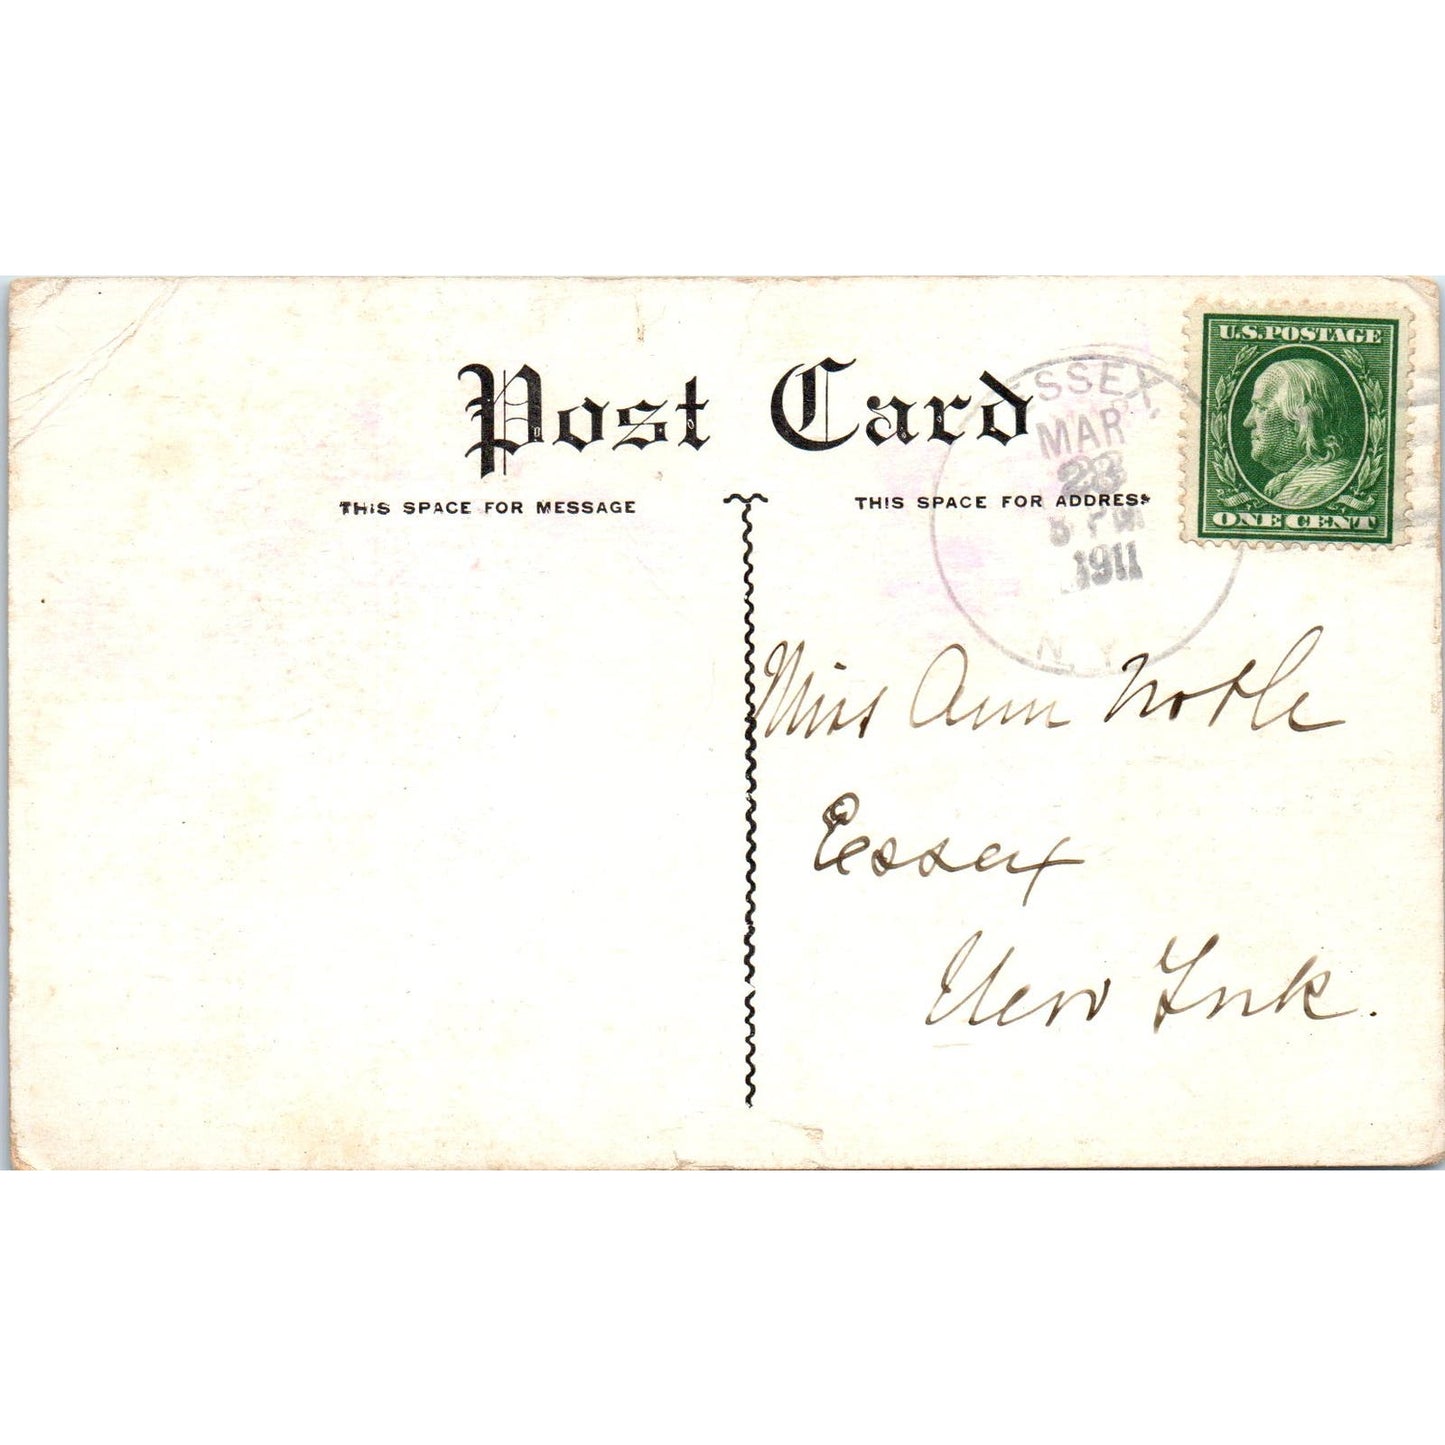 Post Card
THIS SPACE FOR MESSAGE
THIS SPACE FOR ADDRESS
U.S. POSTAGE
ONE CENT
ESSEX,
MAR
23
PM
1911
N. Y.
Miss Ann Noble
Essex
New York.